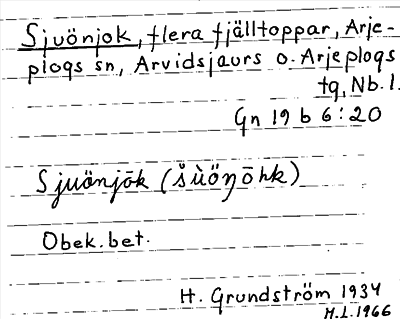 Sjuönjok, flera fjälltoppar, Arje-
plogs sn, Arvidsjaurs o. Arjeplogs
tg, Nb. l.
Gn 19 b 6:20
Sjuönjōk (šùöŋōhk)
Obek. bet.
H. Grundström 1934
M.L. 1966